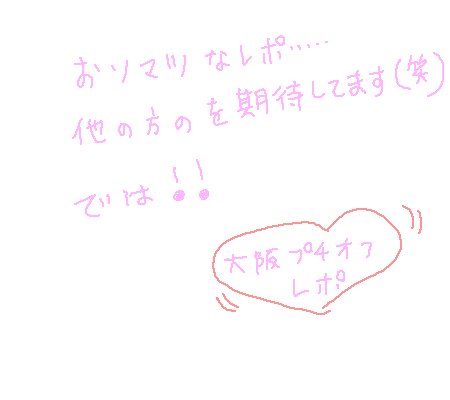 おソマツなレポ‥‥‥
他の方のを期待してます(笑)
では!!
大阪プチオフ
レポ